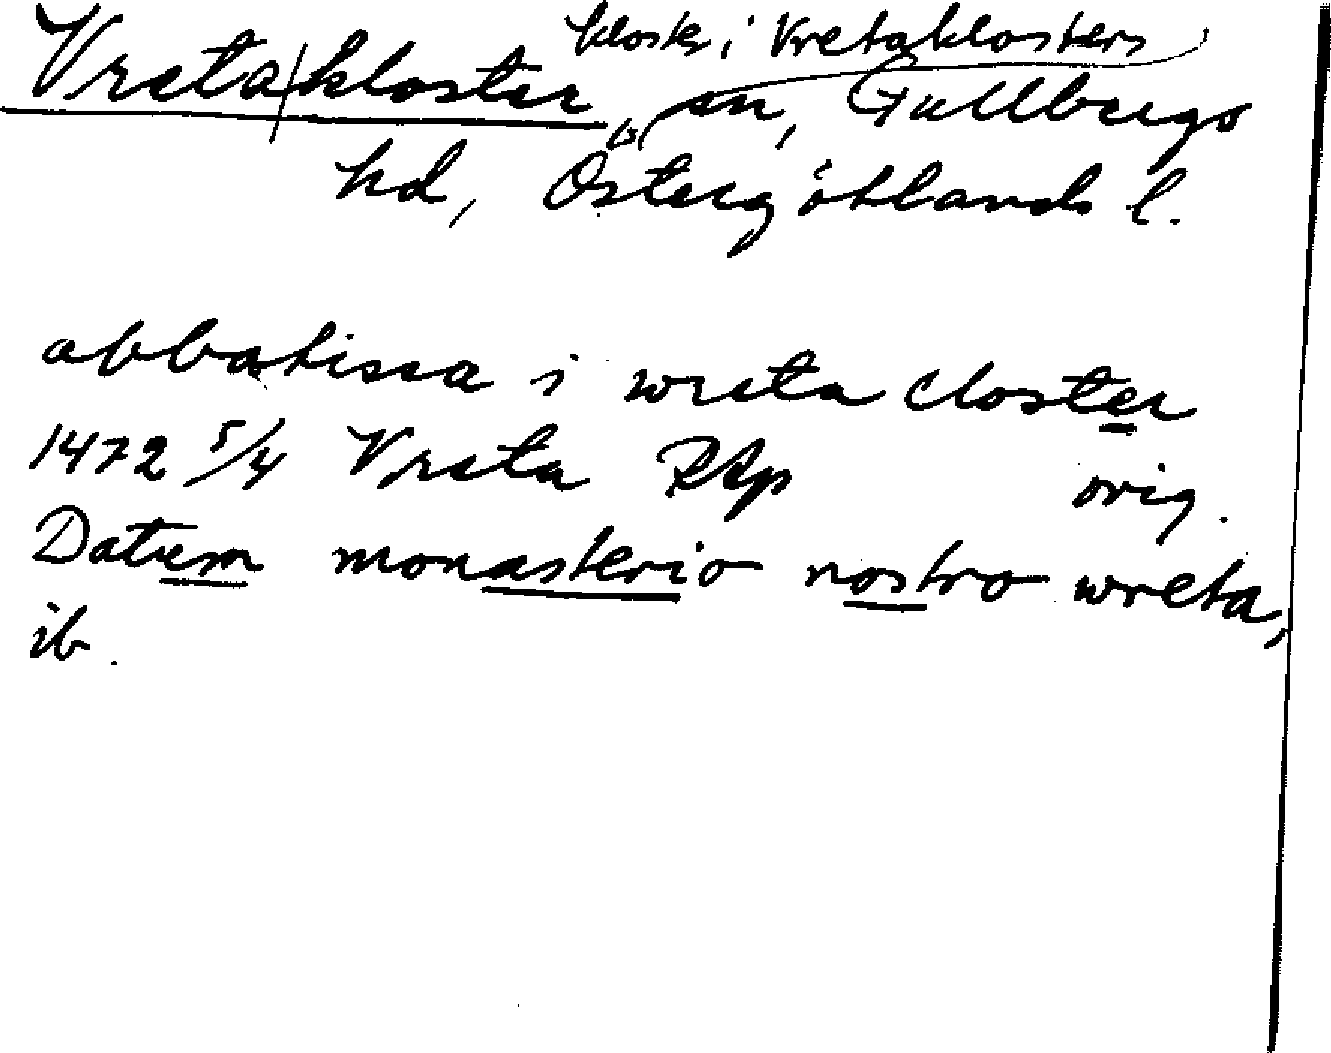 kloster i Vretaklosters
Vreta kloster, sn, Gullbergs
hd, Östergötlands l.
abbatissa i wreta closter
1472 5/4 Vreta RAp orig.
Datum monasterio nostro wreta,
ib.